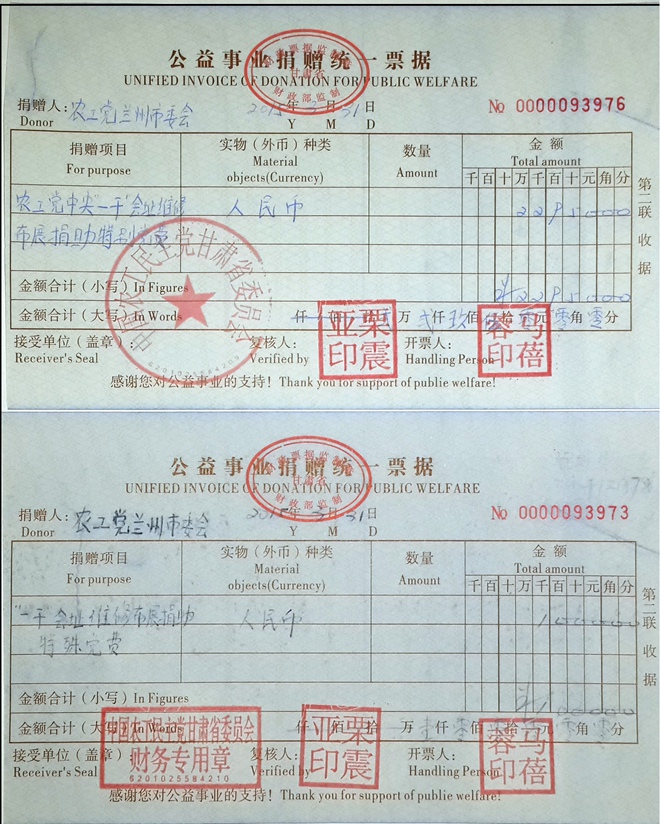 公益事业捐赠统一票据
UNIFIED INVOICE OF DONATION FOR PUBLIC WELFARE
捐赠人：农工党兰州市委会 年 3 月 31 日 No 0000093976
Donor Y M D
捐赠项目 实物（外币）种类 数量 金额
For purpose Material objects(Currency) Amount Total amount
千 百 十 万 千 百 十 元 角 分
农工党中央"一干"会址维修 人民币 2 2 9 5 0 0 0
布展捐助特别党费
金额合计（小写）In Figures ¥ 2 2 9 5 0 0 0
金额合计（大写）In Words 仟 佰 拾 贰 万 贰 仟 玖 佰 拾 元 零 角 零 分
接受单位（盖章）： 复核人： 开票人：
Receiver's Seal Verified by Handling Person
感谢您对公益事业的支持！Thank you for support of publie welfare!
中国农工民主党甘肃省委员会
6201025584209
亚栗印震
蓉马印蓓
第二联 收据
财政部监制
公益事业捐赠统一票据
UNIFIED INVOICE OF DONATION FOR PUBLIC WELFARE
捐赠人：农工党兰州市委会 年 3 月 31 日 No 0000093973
Donor Y M D
捐赠项目 实物（外币）种类 数量 金额
For purpose Material objects(Currency) Amount Total amount
千 百 十 万 千 百 十 元 角 分
"一干"会址维修布展捐助 人民币 1 0 0 0 0 0
特殊党费
金额合计（小写）In Figures ¥ 1 0 0 0 0 0
金额合计（大写）In Words 仟 佰 拾 万 壹 仟 零 佰 零 拾 零 元 零 角 零 分
接受单位（盖章） 复核人： 开票人：
Receiver's Seal Verified by Handling Person
感谢您对公益事业的支持！Thank you for support of publie welfare!
中国农工民主党甘肃省委员会
财务专用章
6201025584210
亚栗印震
蓉马印蓓
第二联 收据
财政部监制